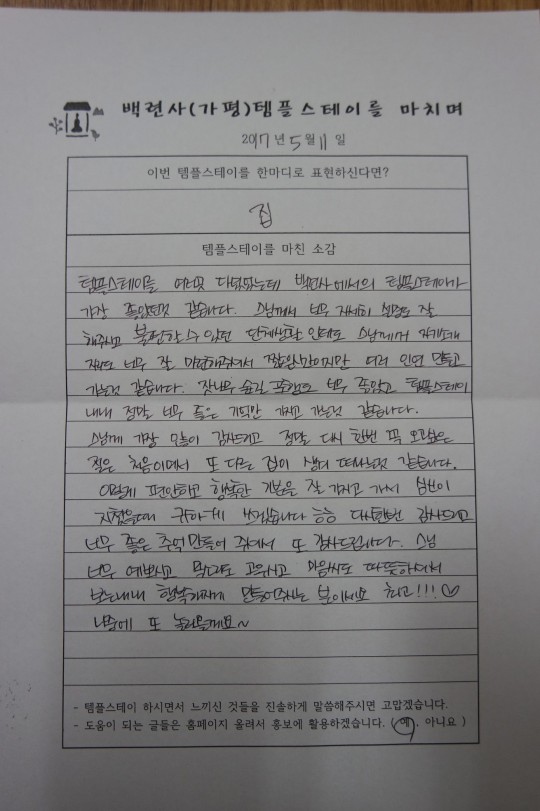 백련사(가평)템플스테이를 마치며
2017년 5월 11일
이번 템플스테이를 한마디로 표현하신다면?
집
템플스테이를 마친 소감
템플스테이를 여러곳 다녔었는데 백련사에서의 템플스테이가
가장 좋았던것 같습니다. 스님께서 너무 자세히 설명도 잘
해주시고 불편할 수 있던 단체생활 인데도 스님께서 자기소개
너무 잘 마련해주셔서 짧은시간이지만 여러 인연 만들고
가는것 같습니다. 잣나무 숲길 너무 좋았고 템플스테이
내내 정말 너무 좋은 기억만 가지고 가는것 같습니다.
스님께 가장 많이 감사드리고 정말 다시 한번 꼭 오고싶은
절은 처음이예서 또 다른 집이 생겨 떠나는것 같습니다.
이렇게 편안하고 행복한 기분을 잘 가지고 가서 심신이
지쳤을때 귀하게 쓰겠습니다 다시한번 감사드리고
너무 좋은 추억 만들어 주셔서 또 감사드립니다. 스님
너무 예쁘시고 목소리도 고우시고 마음씨도 따뜻하셔서
보는내내 행복하게 만들어주시는 분이세요 최고!!!♡
나중에 또 놀러올게요~
- 템플스테이 하시면서 느끼신 것들을 진솔하게 말씀해주시면 고맙겠습니다.
- 도움이 되는 글들은 홈페이지 올려서 홍보에 활용하겠습니다. ( 예, 아니요 )